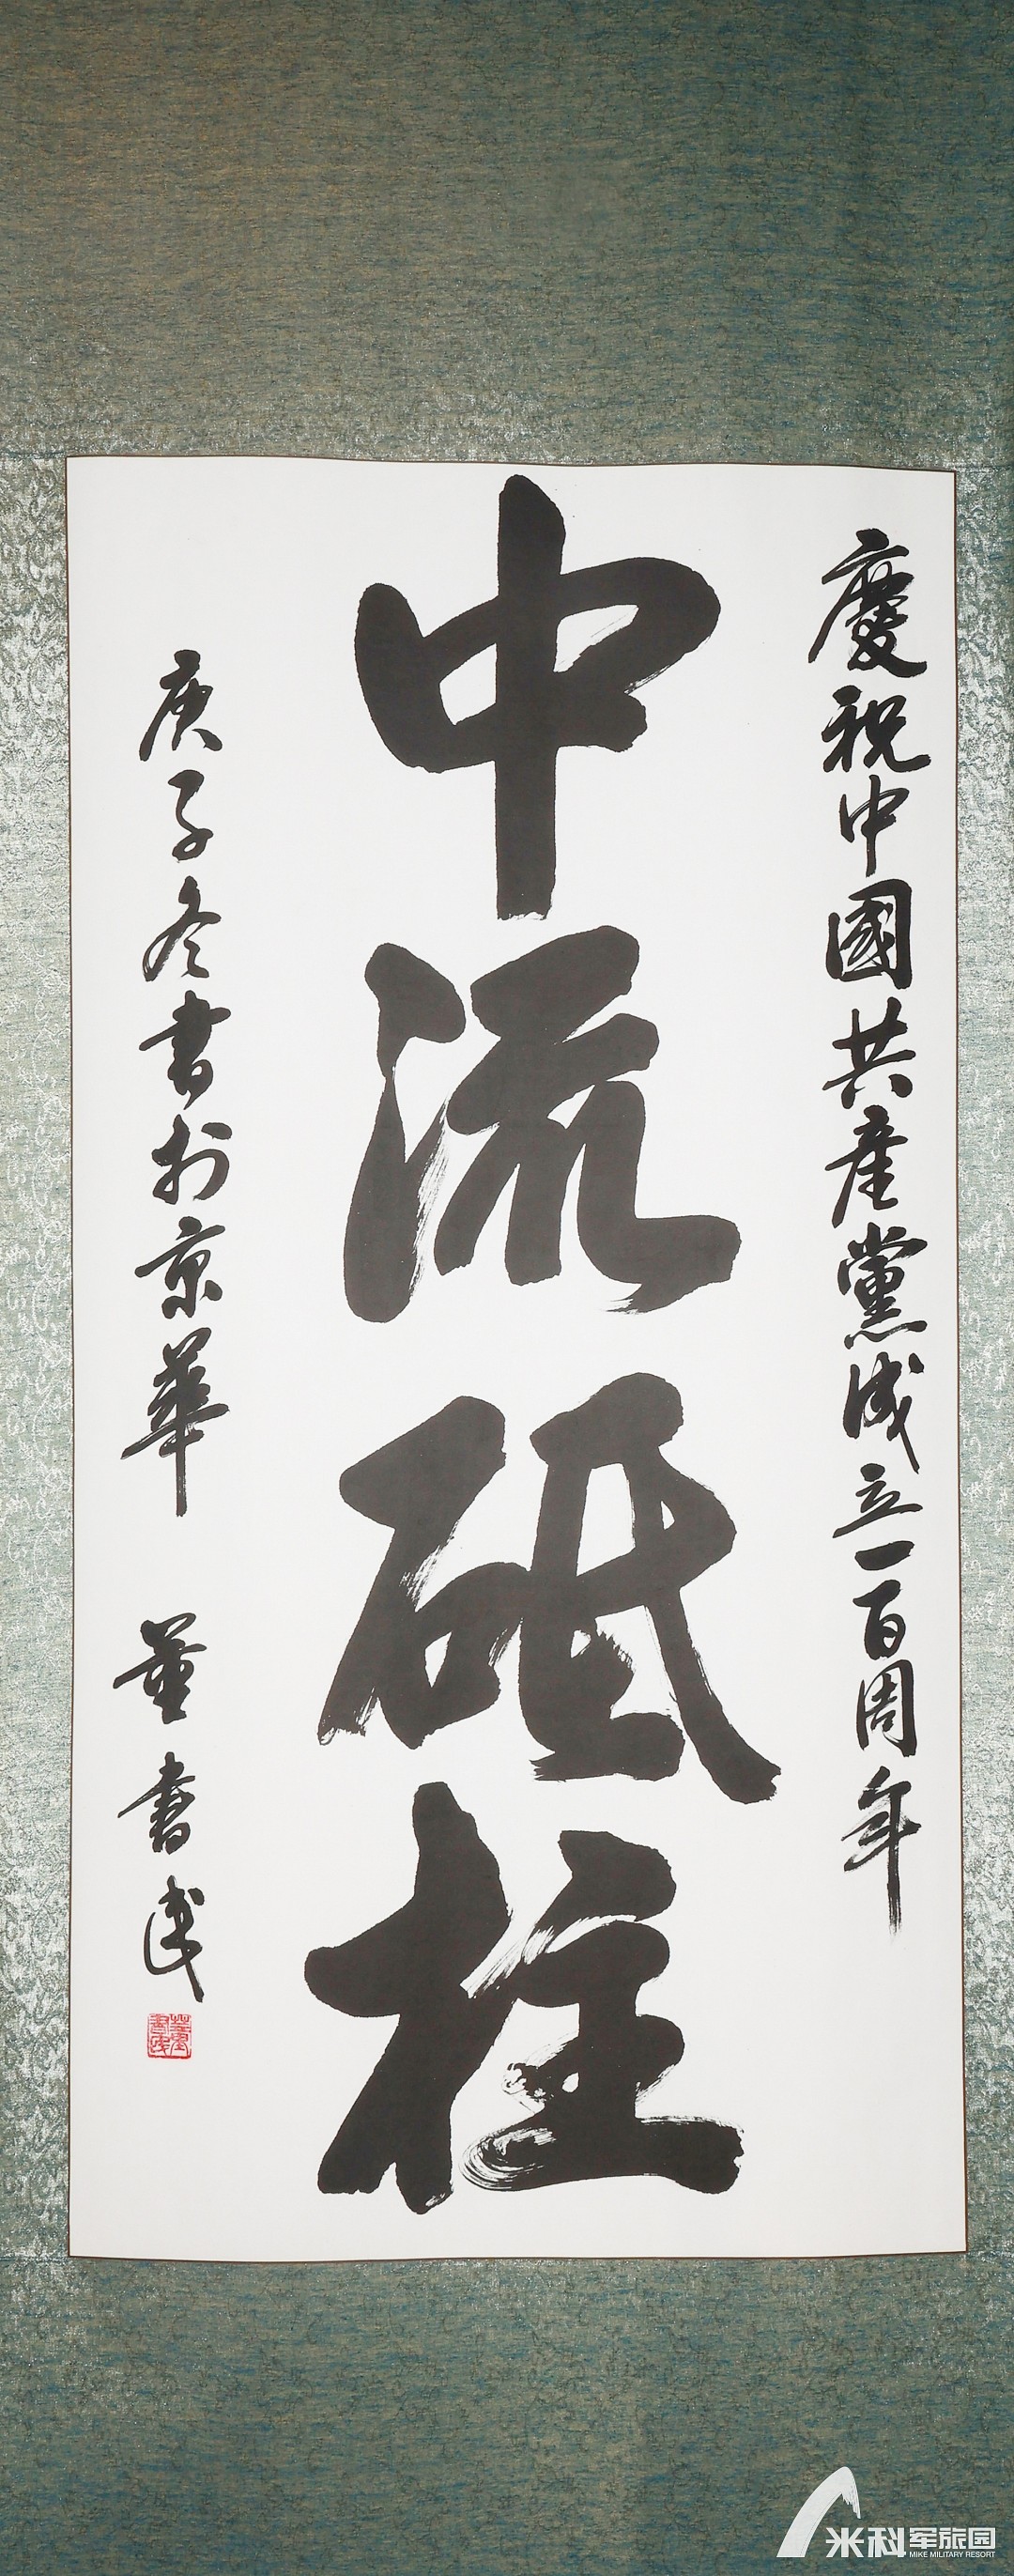 慶祝中國共產黨成立一百周年
中流砥柱
庚子冬書於京華
董書民
米科军旅园
MIKE MILITARY RESORT